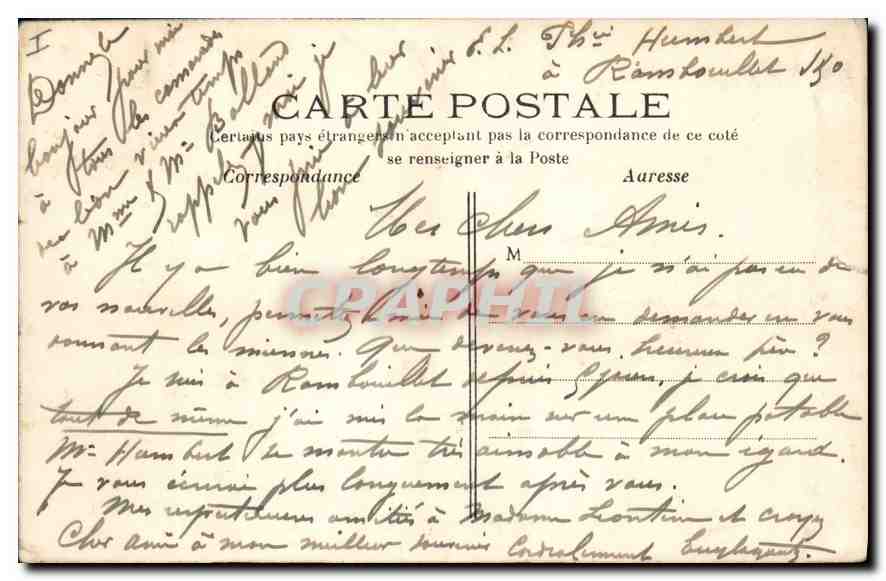 I
Donnez le
bonjour pour moi
à tous les camarades
bien vieux temps
à Mme & Mr Balland
rappelez
vous prie
bon souvenir
Thri Humbert
à Rambouillet S&O
CARTE POSTALE
Certains pays étrangers n'acceptant pas la correspondance de ce coté
se renseigner à la Poste
Correspondance
Adresse
Mes Chers Amis.
M
Il y a bien longtemps que je n'ai pas eu de
vos nouvelles, permettez moi de vous en demander en vous
donnant les miennes. Que devenez-vous, heureux père ?
Je suis à Rambouillet depuis 8 jours, je crois que
tout de même j'ai mis la main sur une place potable
Mr Humbert se montre très aimable à mon égard.
Je vous écrirai plus longuement après vous.
Mes respectueuses amitiés à Madame Léontine et croyez
Cher ami à mon meilleur souvenir Cordialement
CPAPHIL